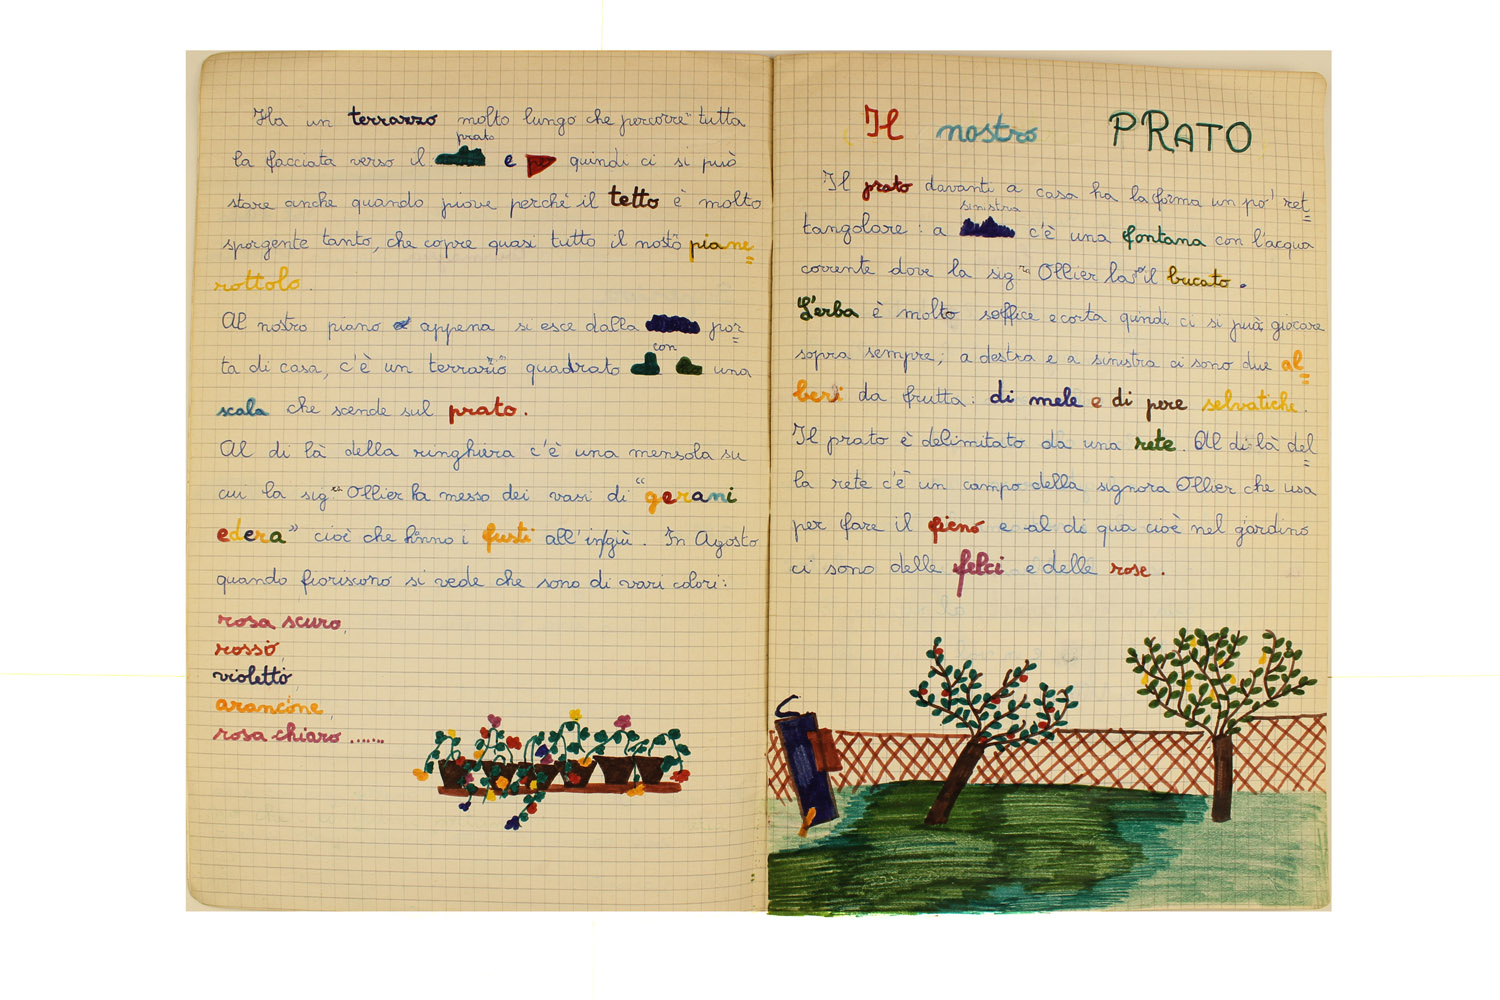 Ha un terrazzo molto lungo che percorre tutta
prato
la facciata verso il e quindi ci si può
stare anche quando piove perchè il tetto è molto
sporgente tanto, che copre quasi tutto il nosto piane
rottolo.
Al nostro piano appena si esce dalla por
con
ta di casa, c'è un terrazzo quadrato una
scala che scende sul prato.
Al di là della ringhiera c'è una mensola su
cui la sig.ra Ollier ha messo dei vasi di "gerani
edera" cioè che hanno i fusti all'ingiù. In Agosto
quando fioriscono si vede che sono di vari colori:
rosa scuro,
rosso,
violetto,
arancione,
rosa chiaro .......
Il nostro PRATO
Il prato davanti a casa ha la forma un po' ret
sinistra
tangolare: a c'è una fontana con l'acqua
corrente dove la sig.ra Ollier lava il bucato.
L'erba è molto soffice e corta quindi ci si può giocare
sopra sempre; a destra e a sinistra ci sono due al
beri da frutta: di mele e di pere selvatiche.
Il prato è delimitato da una rete. Al di là del
la rete c'è un campo della signora Ollier che usa
per fare il fieno e al di qua cioè nel giardino
ci sono delle felci e delle rose.